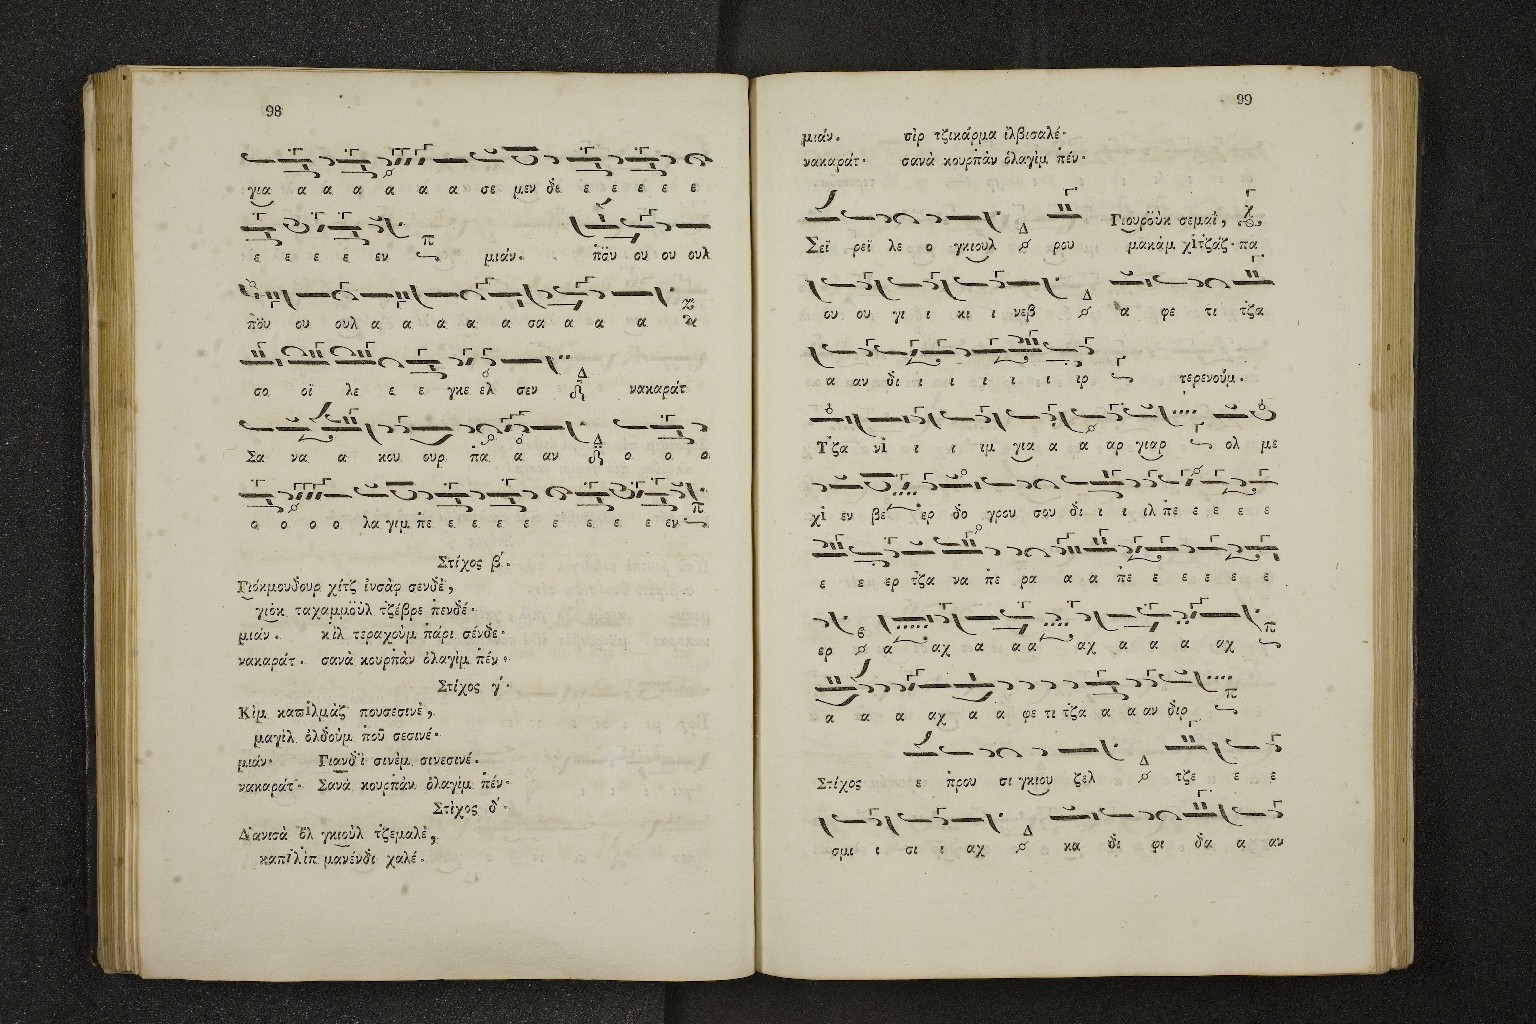 98
για α α α α α α σε μεν δε ε ε ε ε ε
ε ε ε ε εν μιάν. ποῢν ου ου ουλ
ποῢ ου ουλ α α α α α σα α α α
σο οἰ λε ε ε γκε ἐλ σεν νακαράτ
Σα να α κου ουρ πα α αν ο ο ο
ο ο ο ο λα γιμ πε ε ε ε ε ε ε ε ε εν
Στίχος β΄.
Γιόκμουδουρ χίτζ ἰνσὰφ σενδὲ,
γιὸκ ταχαμμοὺλ τζέβρε πενδέ·
μιάν. κὶλ τεραχοὺμ πάρι σένδε·
νακαράτ. σανὰ κουρπὰν ὀλαγὶμ πέν·
Στίχος γ΄.
Κὶμ καπὶλμὰζ πουσεσινὲ,
μαγὶλ ὀλδοὺμ ποῦ σεσινέ·
μιάν· Γιανδὶ σινὲμ σινεσινέ.
νακαράτ· Σανὰ κουρπὰν ὀλαγὶμ πέν·
Στίχος δ΄·
Δανισὰ ὂλ γκιοὺλ τζεμαλὲ,
καπὶλὶπ μανένδι χαλέ.
99
μιάν. σὶρ τζικάρμα ἰλβισαλέ·
νακαράτ· σανὰ κουρπὰν ὀλαγὶμ πέν·
Σεϊ ρεϊ λε ο γκιουλ Δ ρου Γιουροὺκ σεμαΐ, μακὰμ χιτζάζ· πα
ου ου γι ι κι ι νεβ Δ α φε τι τζα
α αν δι ι ι ι ι ι ιρ τερενούμ.
Τζα νὶ ι ι ιμ για α α αρ γιαρ ολ με
χὶ εν βε ερ δο γρου σου δι ι ι ιλ πε ε ε ε ε
ε ε ερ τζα να πε ρα α α πε ε ε ε ε ε
ερ α αχ α α α αχ α α α αχ
α α α αχ α α φε τι τζα α α αν διρ
Στίχος ε πρου σι γκιου ζελ Δ τζε ε ε
σμι ι σι ι αχ Δ κα δι φι δα α αν